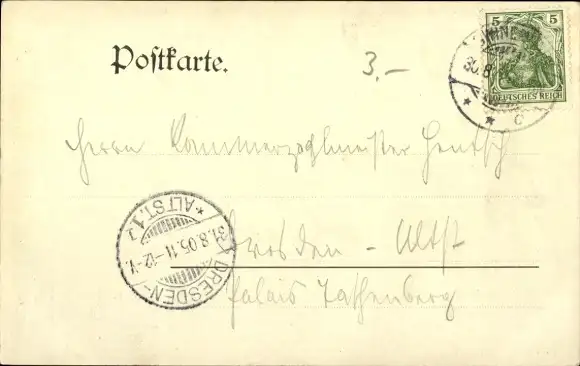 Postkarte.
3,-
5 5
DEUTSCHES REICH
30.8
* * c
Herrn Kammerzahlmeister Hentsch
Dresden - Altst
Palais Taschenberg
DRESDEN-
*ALTST.1
31.8.05.11-12-V.